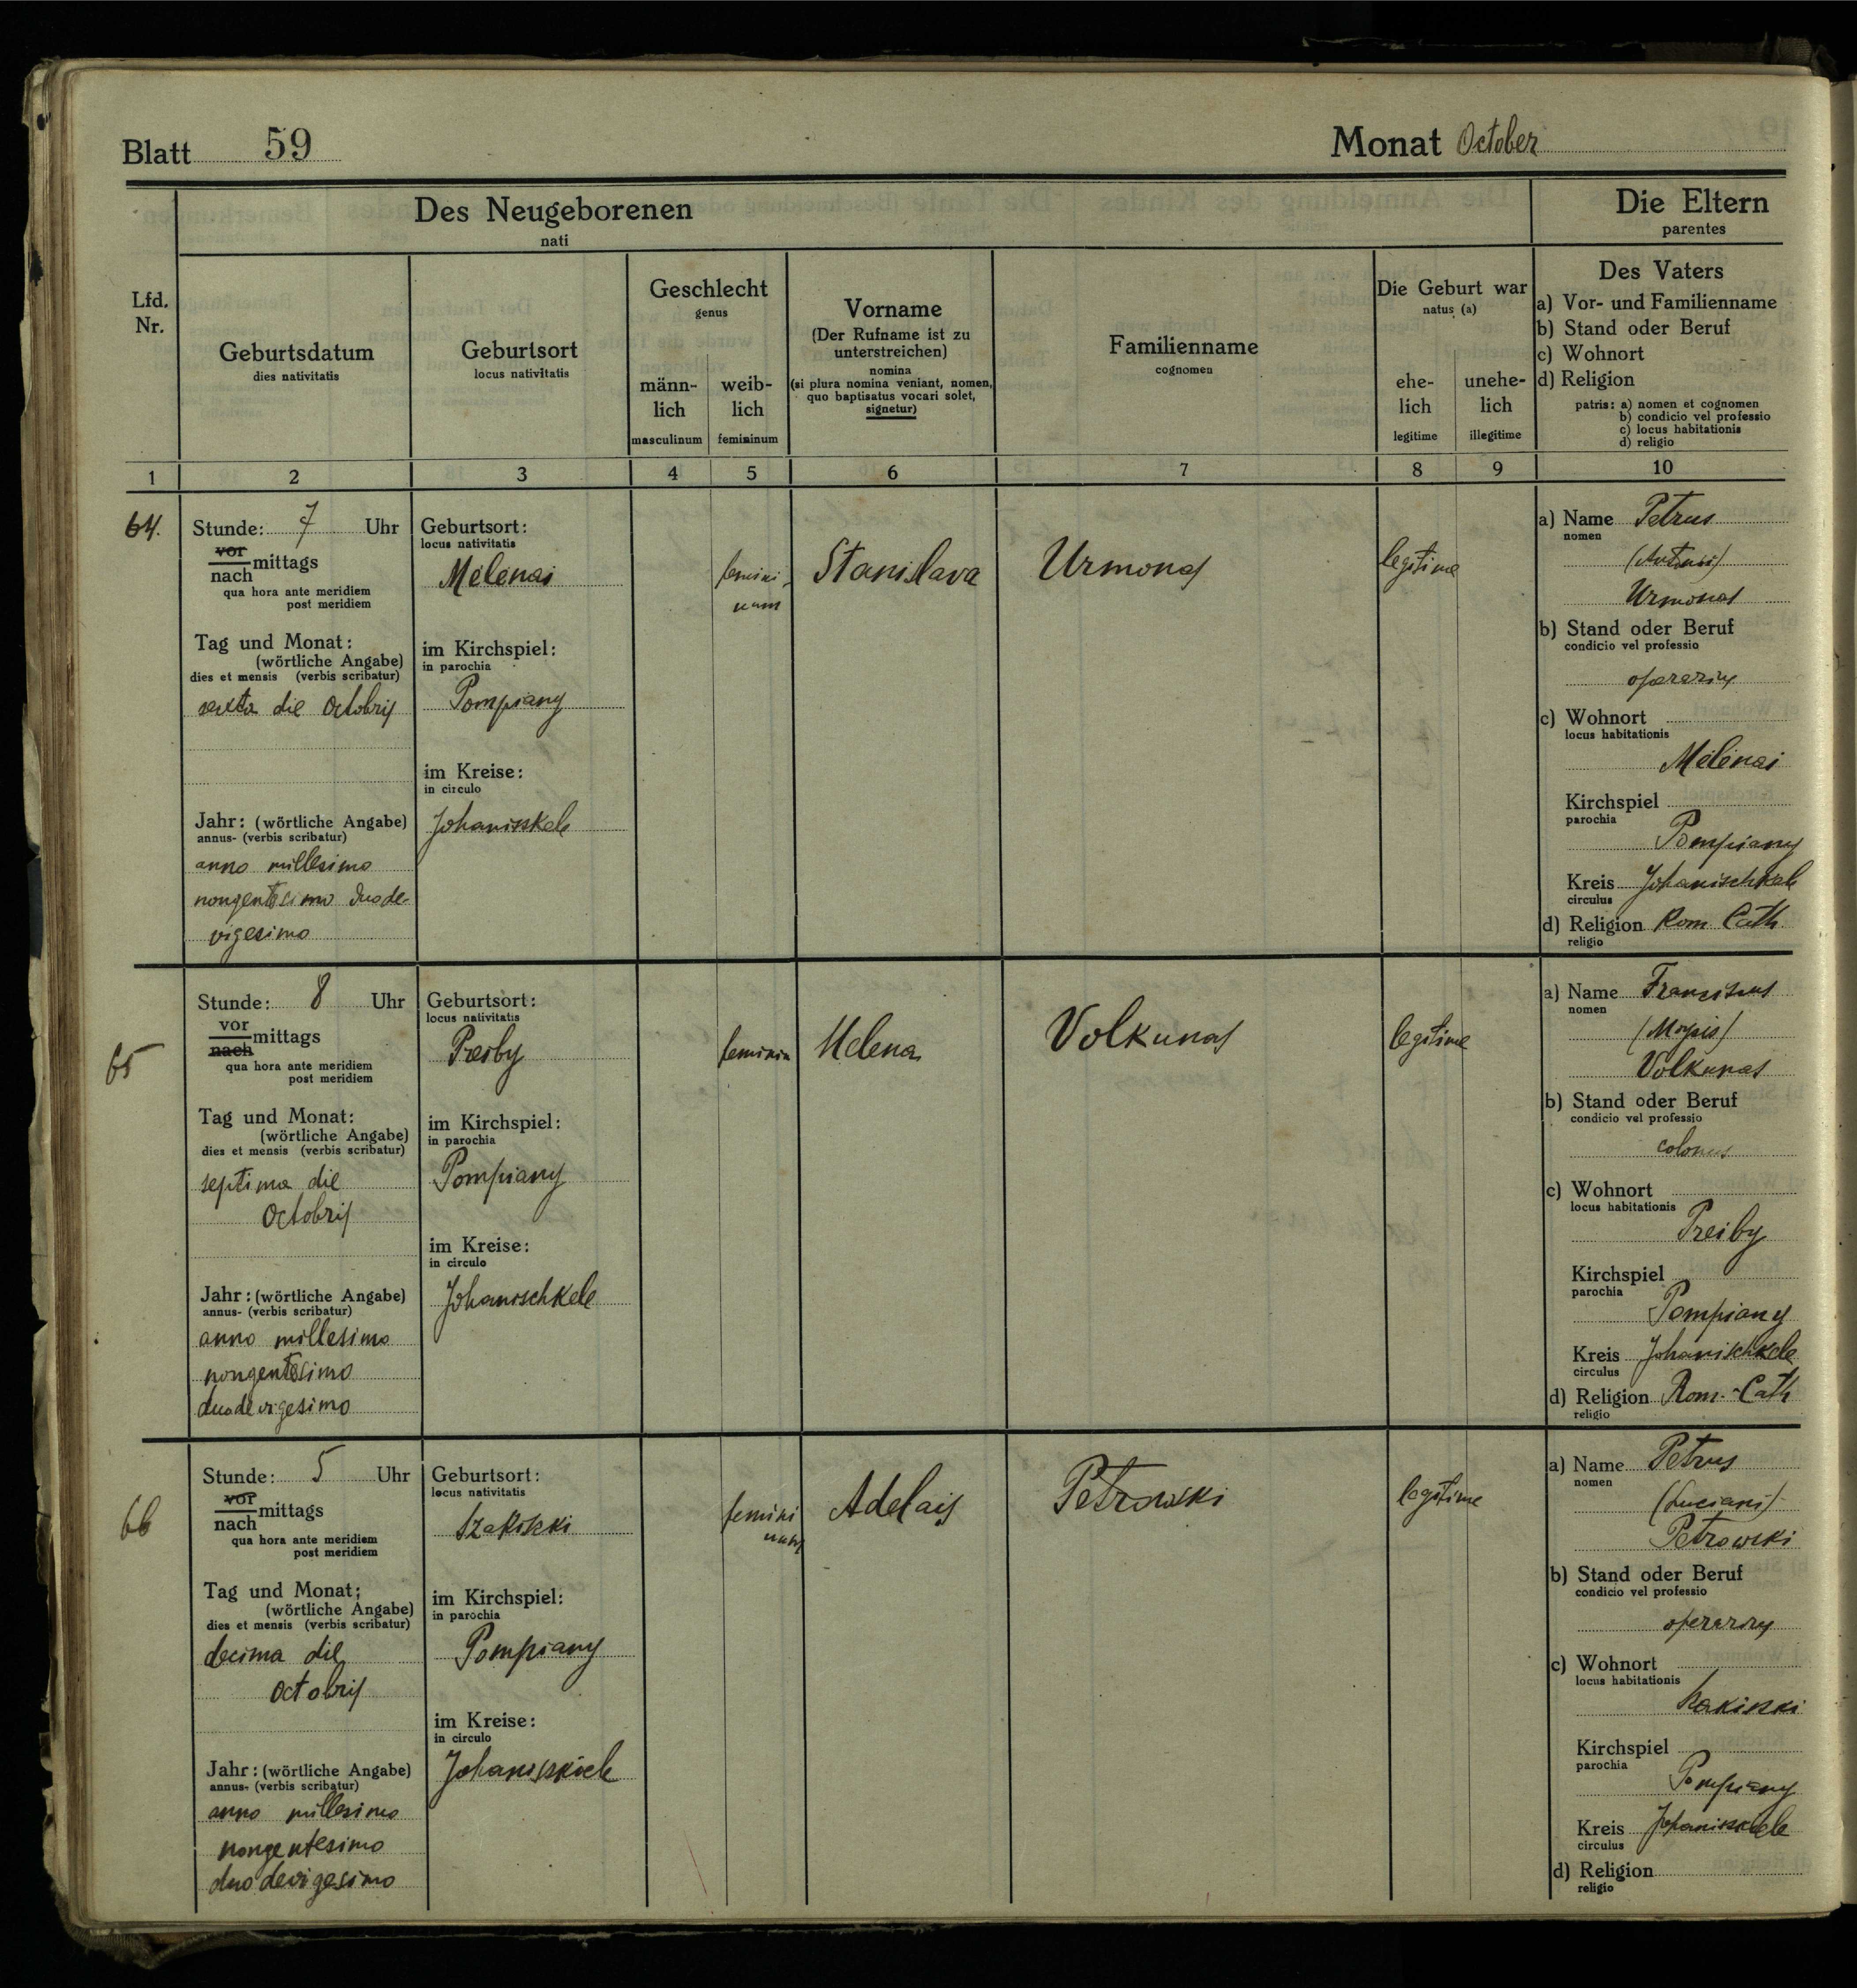 Blatt 59
Monat October
Des Neugeborenen
nati
Die Eltern
parentes
Lfd.
Nr.
Geburtsdatum
dies nativitatis
Geburtsort
locus nativitatis
Geschlecht
genus
männ-
lich
masculinum
weib-
lich
femininum
Vorname
(Der Rufname ist zu
unterstreichen)
nomina
(si plura nomina veniant, nomen,
quo baptisatus vocari solet,
signetur)
Familienname
cognomen
Die Geburt war
natus (a)
ehe-
lich
legitime
unehe-
lich
illegitime
Des Vaters
a) Vor- und Familienname
b) Stand oder Beruf
c) Wohnort
d) Religion
patris: a) nomen et cognomen
b) condicio vel professio
c) locus habitationis
d) religio
1 2 3 4 5 6 7 8 9 10
64.
Stunde: 7 Uhr
vor
mittags
nach
qua hora ante meridiem
post meridiem
Tag und Monat:
(wörtliche Angabe)
dies et mensis (verbis scribatur)
sexta die Octobris
Jahr: (wörtliche Angabe)
annus- (verbis scribatur)
anno millesimo
nongentesimo duode-
vigesimo
Geburtsort:
locus nativitatis
Melenai
im Kirchspiel:
in parochia
Pompiany
im Kreise:
in circulo
Johanisskele
femini-
num
Stanislava
Urmonas
legitime
a) Name Petrus
nomen
(Antonii)
Urmonas
b) Stand oder Beruf
condicio vel professio
operarius
c) Wohnort
locus habitationis
Melenai
Kirchspiel
parochia
Pompiany
Kreis Johanischkele
circulus
d) Religion Rom. Cath.
religio
65
Stunde: 8 Uhr
vor
mittags
nach
qua hora ante meridiem
post meridiem
Tag und Monat:
(wörtliche Angabe)
dies et mensis (verbis scribatur)
septima die
Octobris
Jahr: (wörtliche Angabe)
annus- (verbis scribatur)
anno millesimo
nongentesimo
duodevigesimo
Geburtsort:
locus nativitatis
Preiby
im Kirchspiel:
in parochia
Pompiany
im Kreise:
in circulo
Johanischkele
feminin
Helena
Volkunas
legitime
a) Name Franciscus
nomen
Volkunas
b) Stand oder Beruf
condicio vel professio
colonus
c) Wohnort
locus habitationis
Preiby
Kirchspiel
parochia
Pompiany
Kreis Johanischkele
circulus
d) Religion Rom.-Cath
religio
66
Stunde: 5 Uhr
vor
mittags
nach
qua hora ante meridiem
post meridiem
Tag und Monat:
(wörtliche Angabe)
dies et mensis (verbis scribatur)
decima die
Octobris
Jahr: (wörtliche Angabe)
annus- (verbis scribatur)
anno millesimo
nongentesimo
duodevigesimo
Geburtsort:
locus nativitatis
Szakiszki
im Kirchspiel:
in parochia
Pompiany
im Kreise:
in circulo
Johanisskiele
femini
num
Adelais
Petrowski
legitime
a) Name Petrus
nomen
(Luciani)
Petrowski
b) Stand oder Beruf
condicio vel professio
operarius
c) Wohnort
locus habitationis
Szakiszki
Kirchspiel
parochia
Pompiany
Kreis Johanisskele
circulus
d) Religion
religio